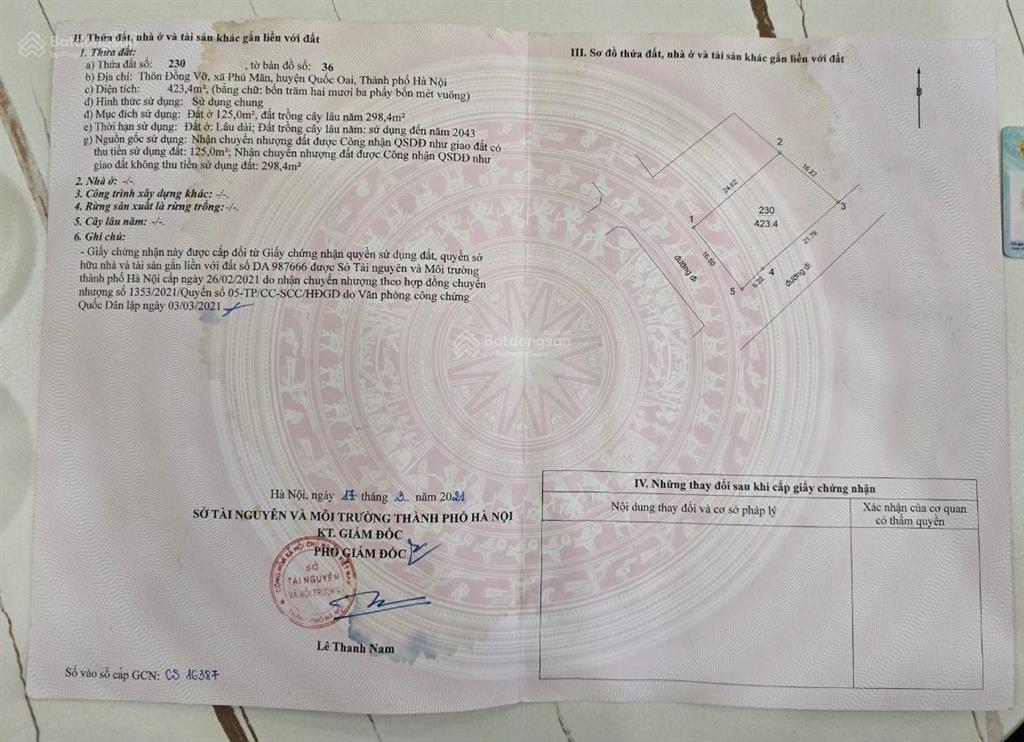 II. Thửa đất, nhà ở và tài sản khác gắn liền với đất
1. Thửa đất:
a) Thửa đất số: 230 , tờ bản đồ số: 36
b) Địa chỉ: Thôn Đồng Vỡ, xã Phú Mãn, huyện Quốc Oai, Thành phố Hà Nội
c) Diện tích: 423,4m² (bằng chữ: bốn trăm hai mươi ba phẩy bốn mét vuông)
d) Hình thức sử dụng: Sử dụng chung
đ) Mục đích sử dụng: Đất ở 125,0m², đất trồng cây lâu năm 298,4m²
e) Thời hạn sử dụng: Đất ở: Lâu dài; Đất trồng cây lâu năm: sử dụng đến năm 2043
g) Nguồn gốc sử dụng: Nhận chuyển nhượng đất được Công nhận QSDĐ như giao đất có
thu tiền sử dụng đất: 125,0m²; Nhận chuyển nhượng đất được Công nhận QSDĐ như
giao đất không thu tiền sử dụng đất: 298,4m²
2. Nhà ở: -/-.
3. Công trình xây dựng khác: -/-.
4. Rừng sản xuất là rừng trồng:-/-.
5. Cây lâu năm: -/-.
6. Ghi chú:
- Giấy chứng nhận này được cấp đổi từ Giấy chứng nhận quyền sử dụng đất, quyền sở
hữu nhà và tài sản gắn liền với đất số DA 987666 được Sở Tài nguyên và Môi trường
thành phố Hà Nội cấp ngày 26/02/2021 do nhận chuyển nhượng theo hợp đồng chuyển
nhượng số 1353/2021/Quyển số 05-TP/CC-SCC/HĐGD do Văn phòng công chứng
Quốc Dân lập ngày 03/03/2021
Hà Nội, ngày 17 tháng 3. năm 2021
SỞ TÀI NGUYÊN VÀ MÔI TRƯỜNG THÀNH PHỐ HÀ NỘI
KT. GIÁM ĐỐC
PHÓ GIÁM ĐỐC
CỘNG HÒA XÃ HỘI CHỦ NGHĨA VIỆT NAM
SỞ
TÀI NGUYÊN
VÀ MÔI TRƯỜNG
THÀNH PHỐ HÀ NỘI
Lê Thanh Nam
Số vào sổ cấp GCN: CS 16387
III. Sơ đồ thửa đất, nhà ở và tài sản khác gắn liền với đất
B
2
24.62
16.22
230
423.4
3
1
21.78
16.50
đường đi
4
6.32
5
đường đi
Batdongsan
IV. Những thay đổi sau khi cấp giấy chứng nhận
Nội dung thay đổi và cơ sở pháp lý
Xác nhận của cơ quan
có thẩm quyền